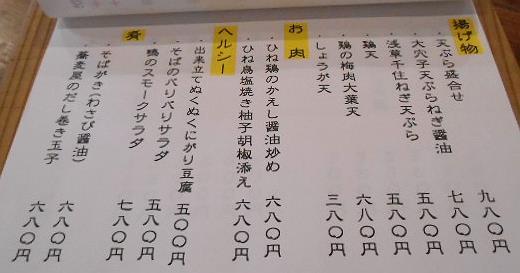 揚げ物
・天ぷら盛合せ 九八〇円
・大穴子天ぷらねぎ醤油 七八〇円
・浅草千住ねぎ天ぷら 五八〇円
・鶏天 五八〇円
・鶏の梅肉大葉天 六八〇円
・しょうが天 三八〇円
お肉
・ひね鶏のかえし醤油炒め 六八〇円
・ひね鳥塩焼き柚子胡椒添え 六八〇円
ヘルシー
・出来立てぬくぬくにがり豆腐 五〇〇円
・そばのパリパリサラダ 五八〇円
・鴨のスモークサラダ 七八〇円
肴
・そばがき(わさび醤油) 六八〇円
・蕎麦屋のだし巻き玉子 六八〇円